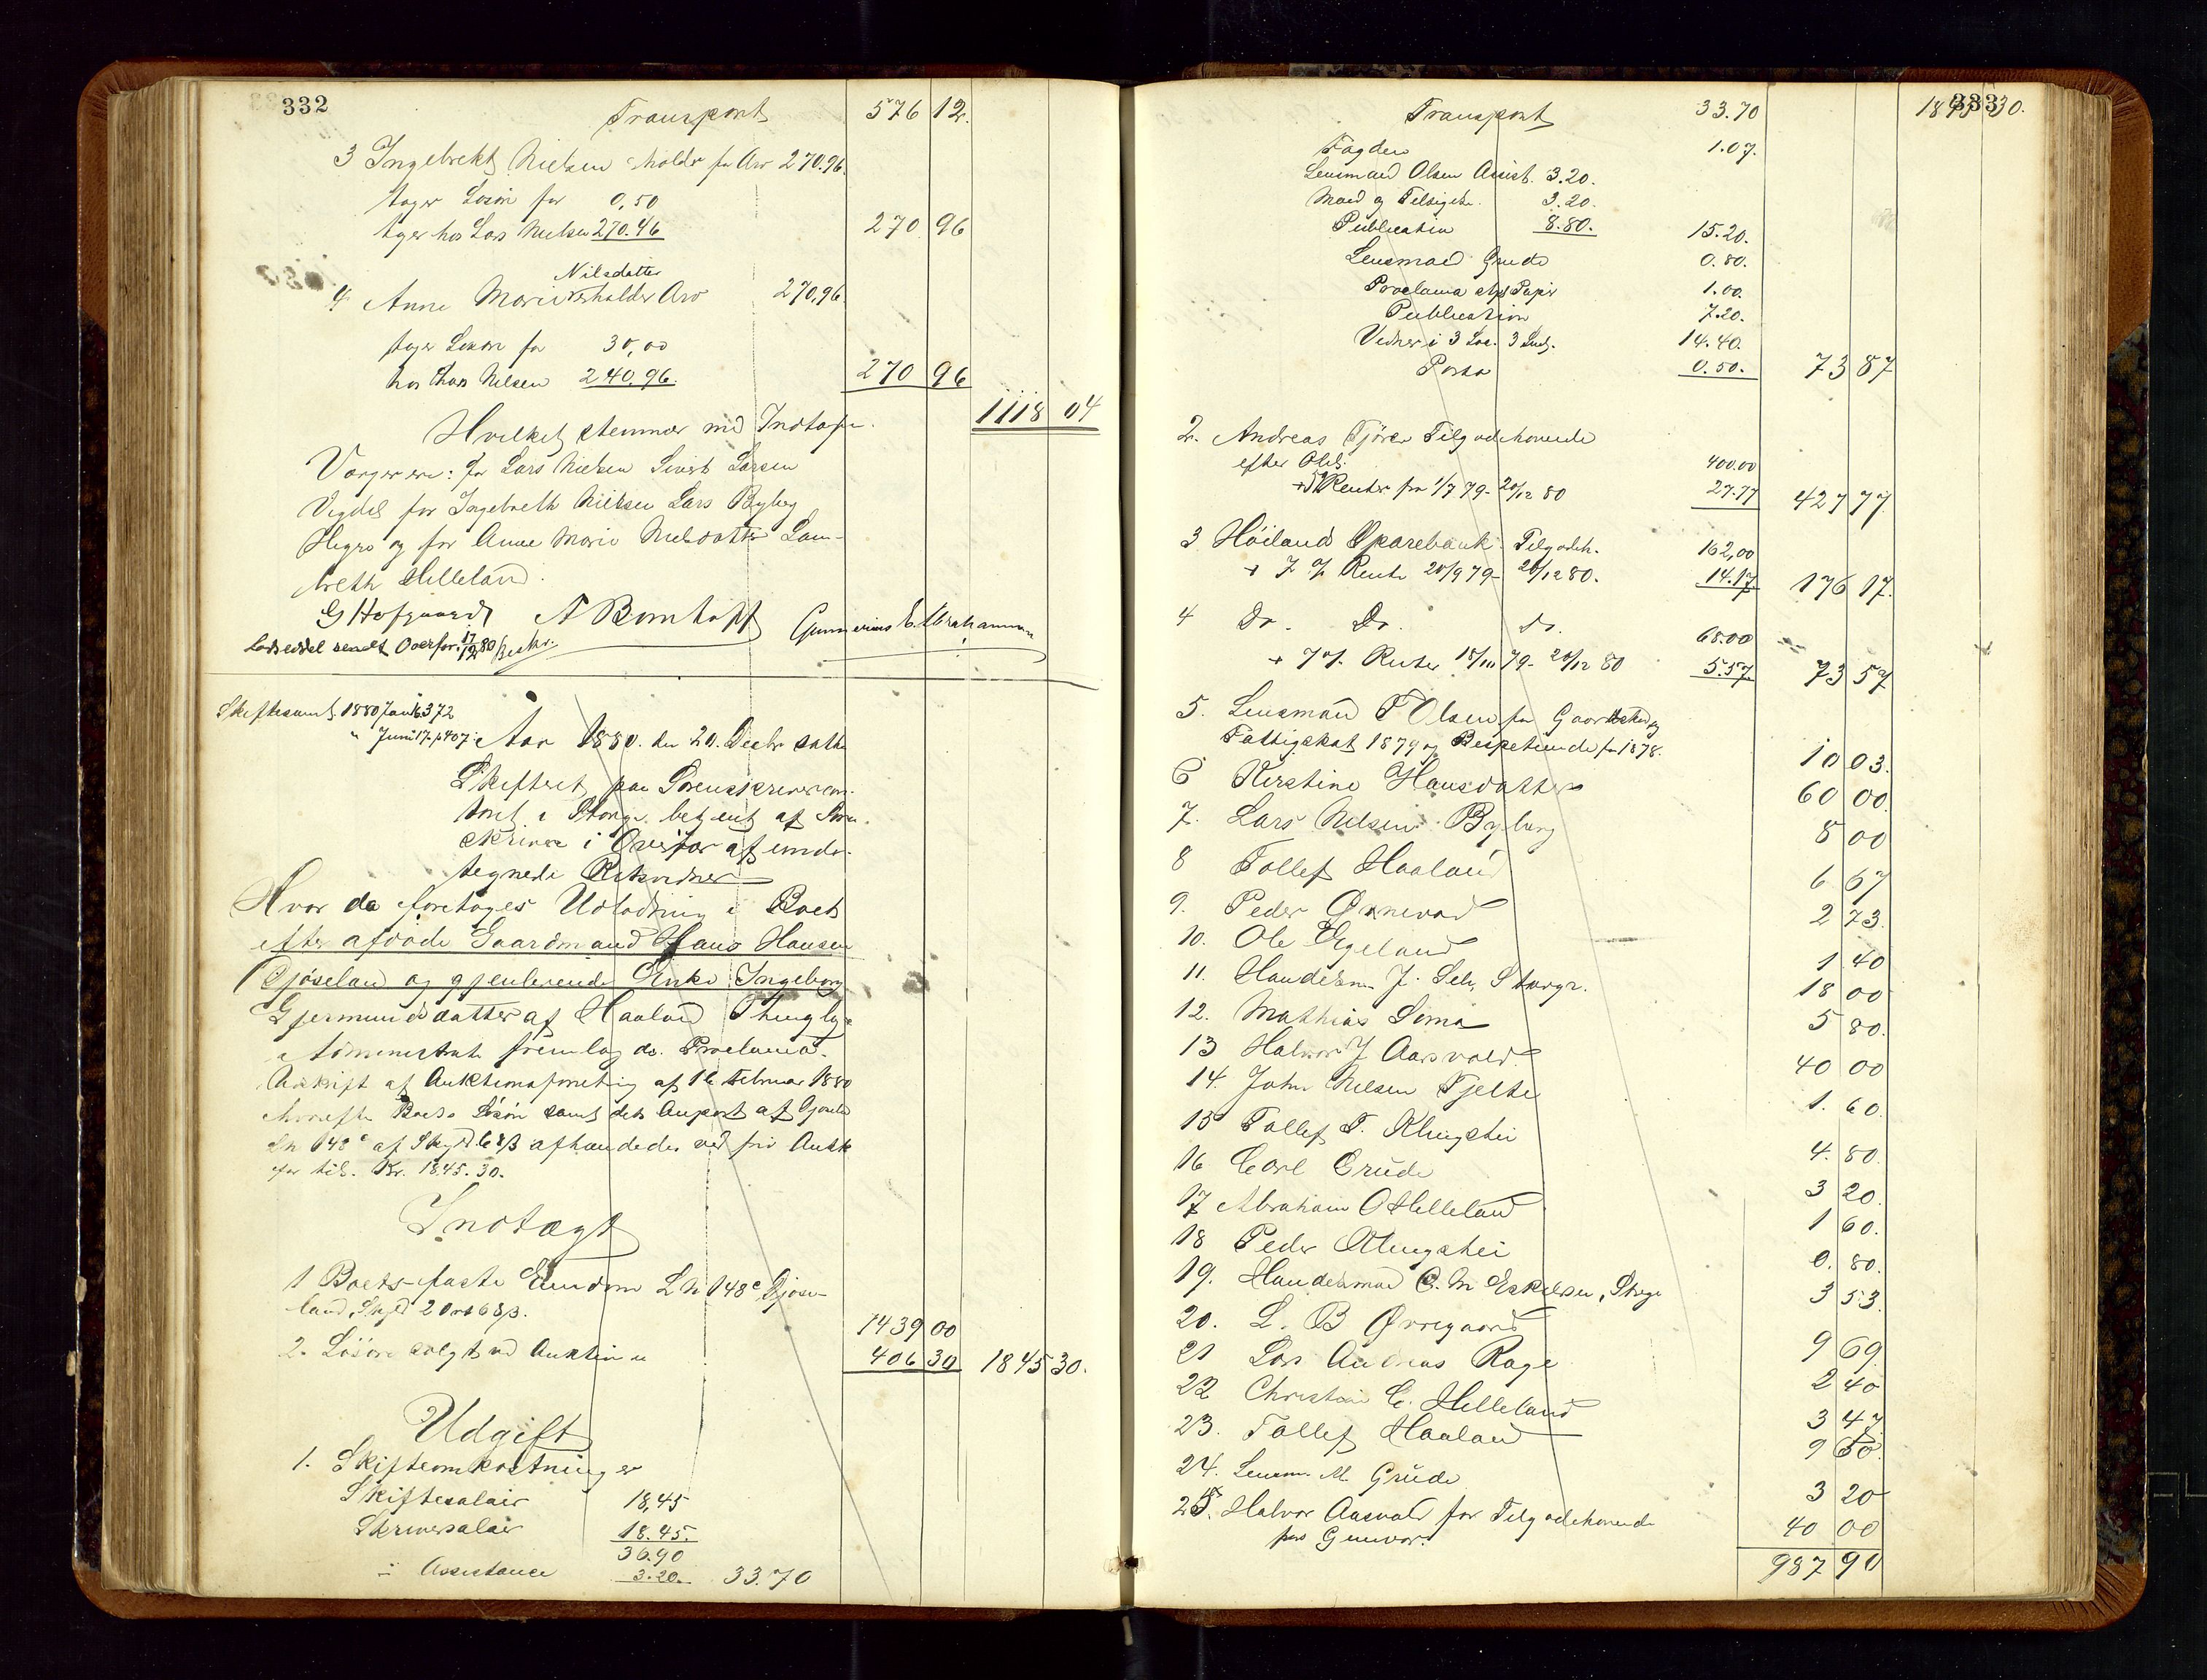 332
Transport 576 12.
3 Ingebrekt Nielsen holder for Arv 270.96.
tager Løsøre for 0,50
tager hos Lars Nielsen 270.46 270 96
Nilsdatter
4 Anne Marie holder Arv 270,96.
tager Løsøre for 30,00
hos Lars Nilsen 240,96. 270 96
1118 04
Hvilket stemmer med Indtægt.
Værger ere: for Lars Nielsen Sivert Larsen
Vigdel for Ingebreth Nielsen Lars Byberg
Hegre og for Anne Marie Nielsdatter Lau-
breth Helleland.
G Hofgaard A Bomhoff Gunnerius E. Abrahamsen
Lodseddel sendt Overfor. 17/12 80
Skiftesaml. 1880 Jan 16. 372
" Juni 17. p 407.
Aar 1880. den 20. Decbr. sattes
Skifteret paa Sorenskrivercon-
toret i Stange betjent af Soren-
skriver i Overfor af under-
tegnede Retsvidner
Hvor da foretoges Udlodning i Boet
efter afdøde Gaardmand Hans Hansen
Gjøseland og gjenlevende Enke Ingeborg
Gjermundsdatter af Haaland Thinglag
Administrator fremlagde Proclama.
Udskrift af Auktionsforretning af 16 Februar 1880
hvorefter Boets Løsøre samt dets Anpart af Gjøseland
Ln 148c af Skyld 68β afhændedes ved fri Auktion
for til. Kr. 1845.30.
Indtægt
1 Boets faste Eiendom L N 148c Gjøse-
land, Skyld 2 Ort 68β. 1439 00
2. Løsøre solgt ved Auktion 406 30 1845 30.
Udgift
1. Skifteomkostninger
Skiftesalair 18,45
Skriversalair 18.45.
36.90
÷ Assistance 3.20. 33.70
333
Transport 33.70 1845 30.
Fogden 1.07.
Lensmand Olsen Assist. 3.20.
Mød og Tilsigelse 3.20.
Publication 8.80. 15.20.
Lensmand Grude 0.80.
Proclama Papir 1.00.
Publication 7.20.
Vidner i 3 14.40.
Porto 0.50. 73 87
2. Andreas Tjøre Tilgodehavende
efter Obl. 400.00
Renter fra 1/7 79- 20/12 80 27.77 427 77
3 Høiland Sparebank Tilgodeh. 162,00
+ 7 % Rente 20/9 79- 20/12 80. 14.17. 176 17.
4 Do. Do. Do. 68.00
+ 7 % Renter 18/10 79- 20/12 80 5.57. 73 57
5. Lensmand T Olsen for og
Fattigskat 1879 og for 1878. 10 03.
6 Kirstine Hansdatter 60 00.
7. Lars Nilsen Byberg 8 00
8 Tollef Haaland 6 67
9. Peder Ørnevad 2 73.
10. Ole Egeland 1 40
11. Handelsm J. Stange. 18 00
12. Mathias Sømme 5 80.
13 Halvor J Aasvald 40 00
14. John Nilsen Fjelde 1. 60.
15 Tollef T. Klingshei 4. 80.
16 Carl Grude 3 20.
17 Abraham O Helleland 1 60.
18 Peder Klingshei 0. 80.
19. Handelsmand C. M Eskildsen, Stange 3 53.
20. L. B Øvregaard 9 69.
21 Lars Andreas Rage 2 40
22 Christian C. Helleland 3 47.
23. Tollef Haaland 9 60.
24. Lensm. M. Grude 3 20
25. Halvor Aasvald for Tilgodehavende
hos Gunvor. 40 00
987 90